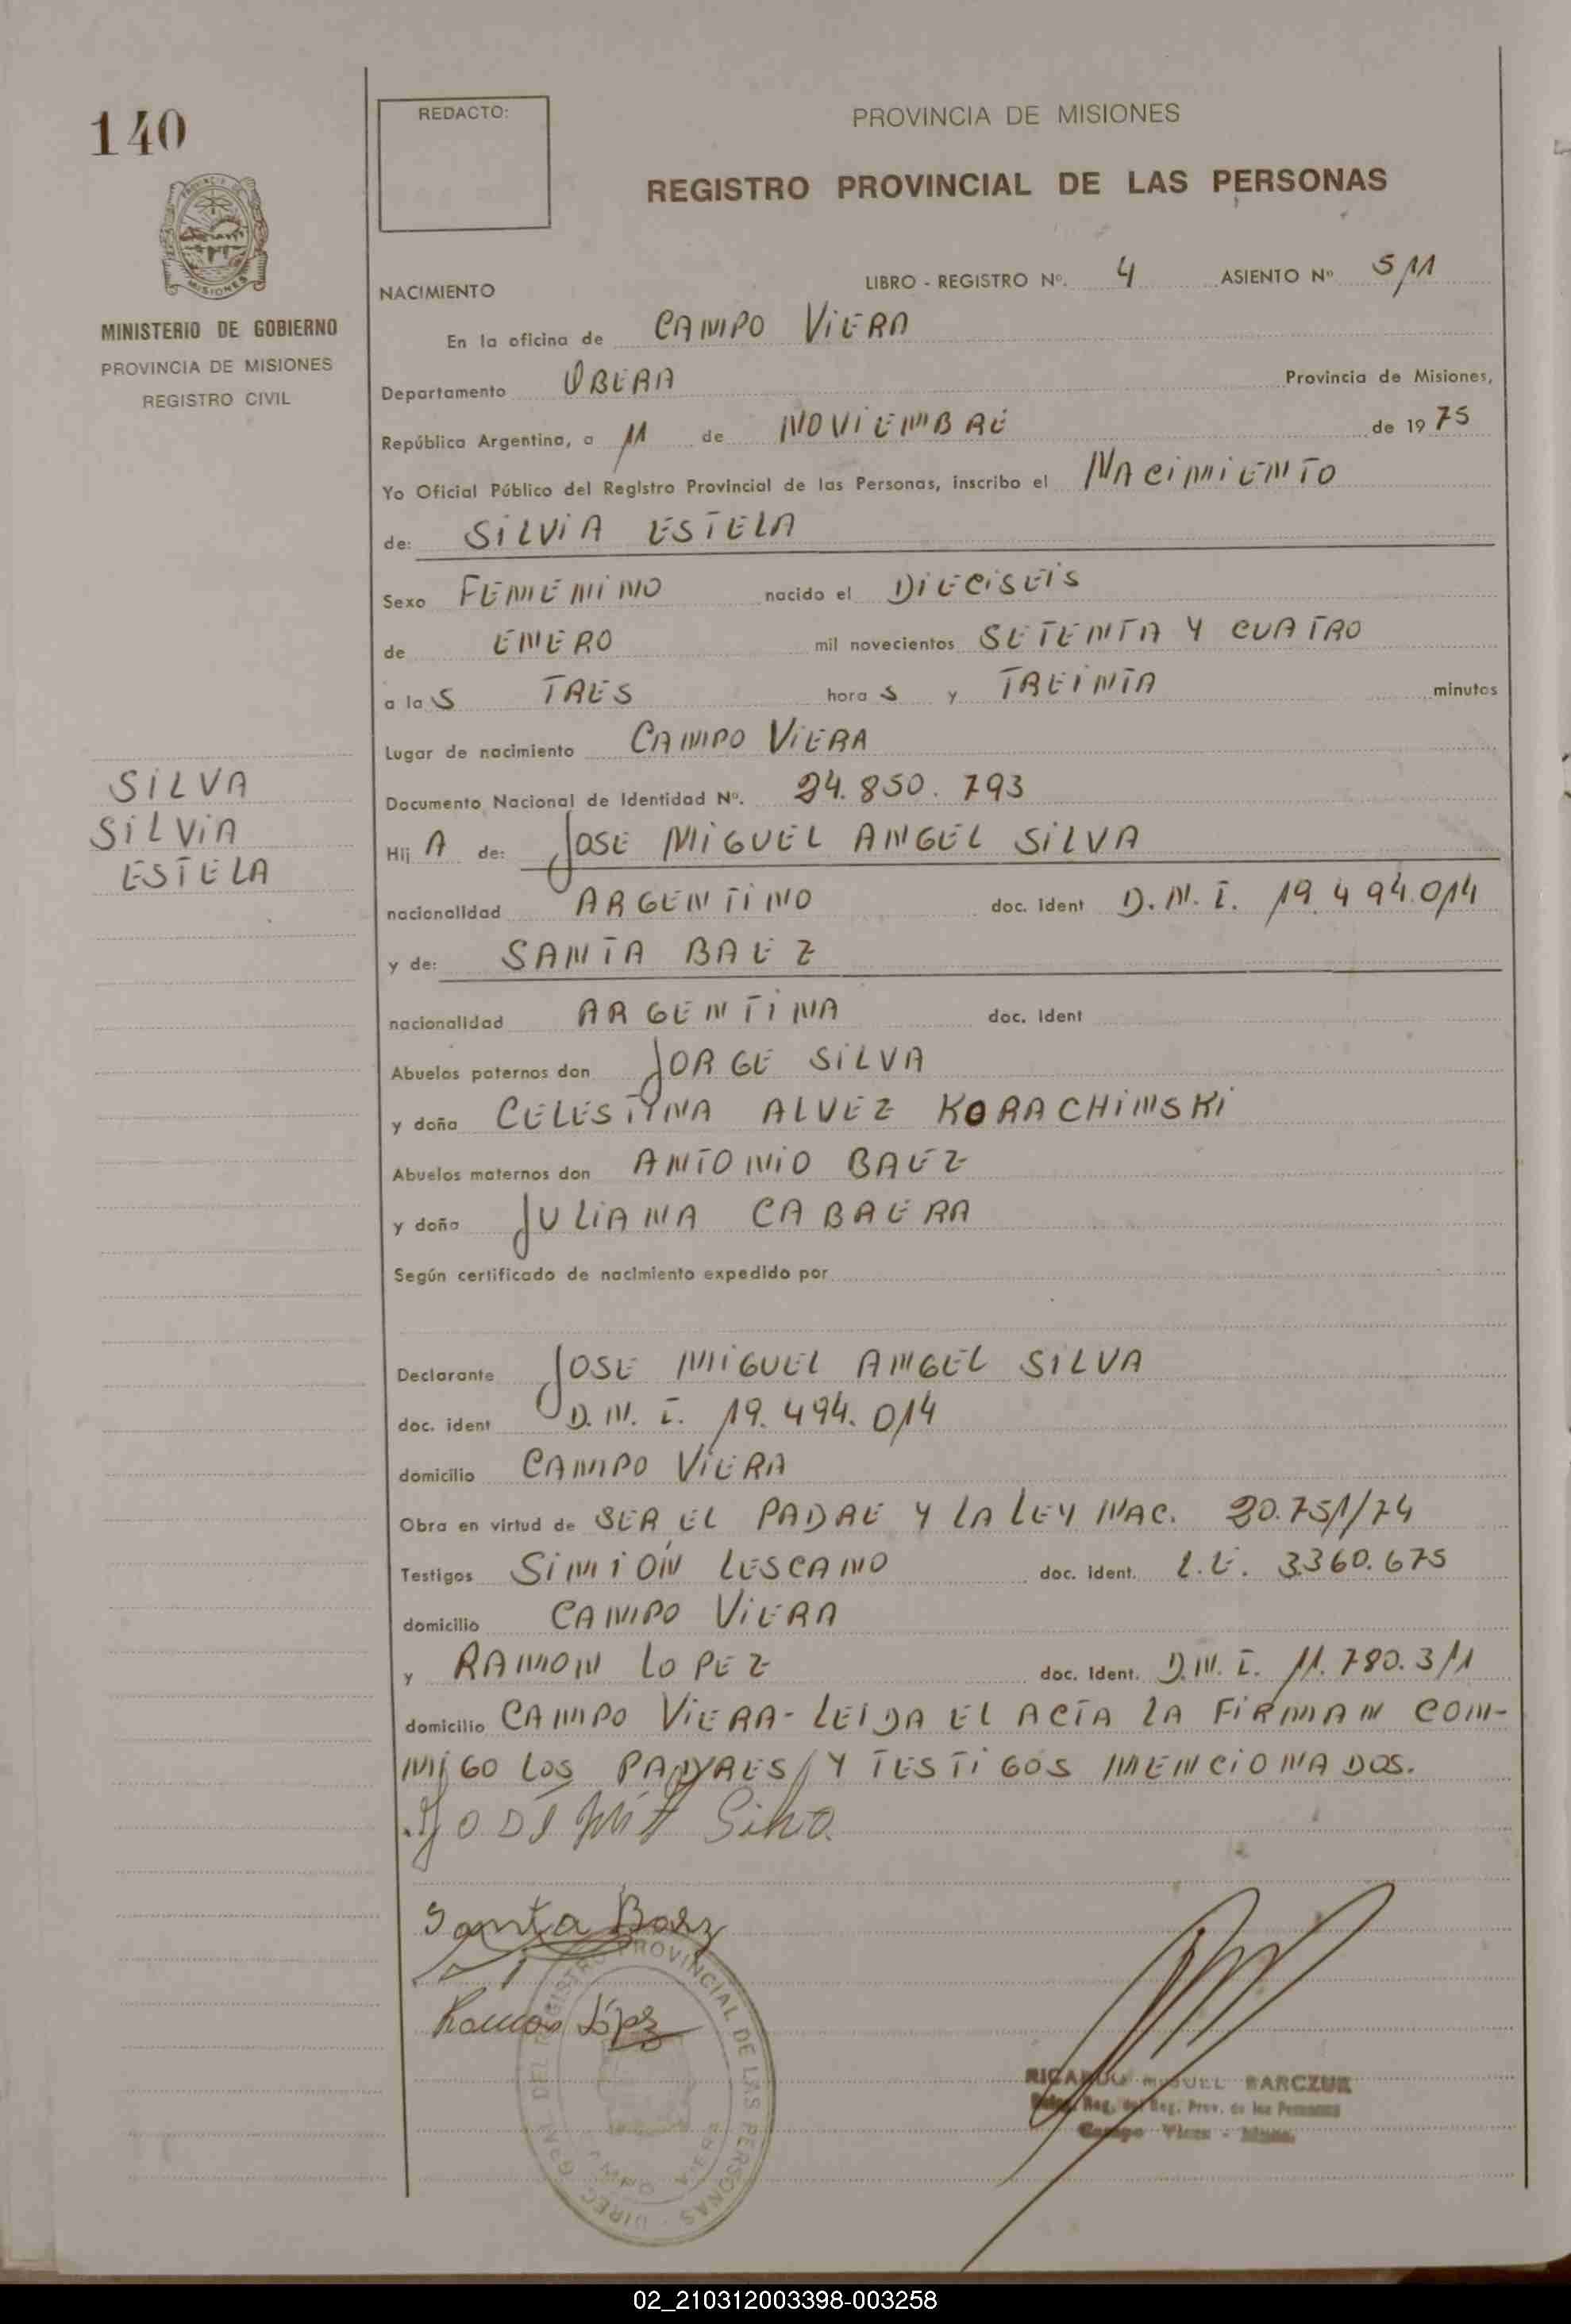 140
REDACTO:
PROVINCIA DE MISIONES
REGISTRO PROVINCIAL DE LAS PERSONAS
PROVINCIA DE
MISIONES
MINISTERIO DE GOBIERNO
PROVINCIA DE MISIONES
REGISTRO CIVIL
NACIMIENTO LIBRO - REGISTRO Nº. 4 ASIENTO Nº 511
En la oficina de CAMPO VIERA
Departamento OBERA Provincia de Misiones,
República Argentina, a 11 de NOVIEMBRE de 1975
Yo Oficial Público del Registro Provincial de las Personas, inscribo el NACIMIENTO
de: SILVIA ESTELA
Sexo FEMENINO nacido el DIECISEIS
de ENERO mil novecientos SETENTA Y CUATRO
a las TRES horas y TREINTA minutos
Lugar de nacimiento CAMPO VIERA
Documento Nacional de Identidad Nº. 24.850.793
SILVA
SILVIA
ESTELA
Hij A de: JOSE MIGUEL ANGEL SILVA
nacionalidad ARGENTINO doc. ident D.N.I. 19.494.014
y de: SANTA BAEZ
nacionalidad ARGENTINA doc. ident
Abuelos paternos don JORGE SILVA
y doña CELESTYNA ALVEZ KORACHINSKI
Abuelos maternos don ANTONIO BAEZ
y doña JULIANA CABRERA
Según certificado de nacimiento expedido por
Declarante JOSE MIGUEL ANGEL SILVA
doc. ident D.N.I. 19.494.014
domicilio CAMPO VIERA
Obra en virtud de SER EL PADRE Y LA LEY NAC. 20.751/74
Testigos SIMION LESCANO doc. ident. L.E. 3360.675
domicilio CAMPO VIERA
y RAMON LOPEZ doc. ident. D.N.I. 11.780.311
domicilio CAMPO VIERA - LEIDA EL ACTA LA FIRMAN CON-
MIGO LOS PADRES Y TESTIGOS MENCIONADOS.
Santa Baez
Ramon López
DIREC. GRAL. DEL REGISTRO PROVINCIAL DE LAS PERSONAS
CAMPO VIERA
RICARDO MIGUEL BARCZUK
Reg. del Reg. Prov. de las Personas
Campo Viera - Mnes.
02_210312003398-003258